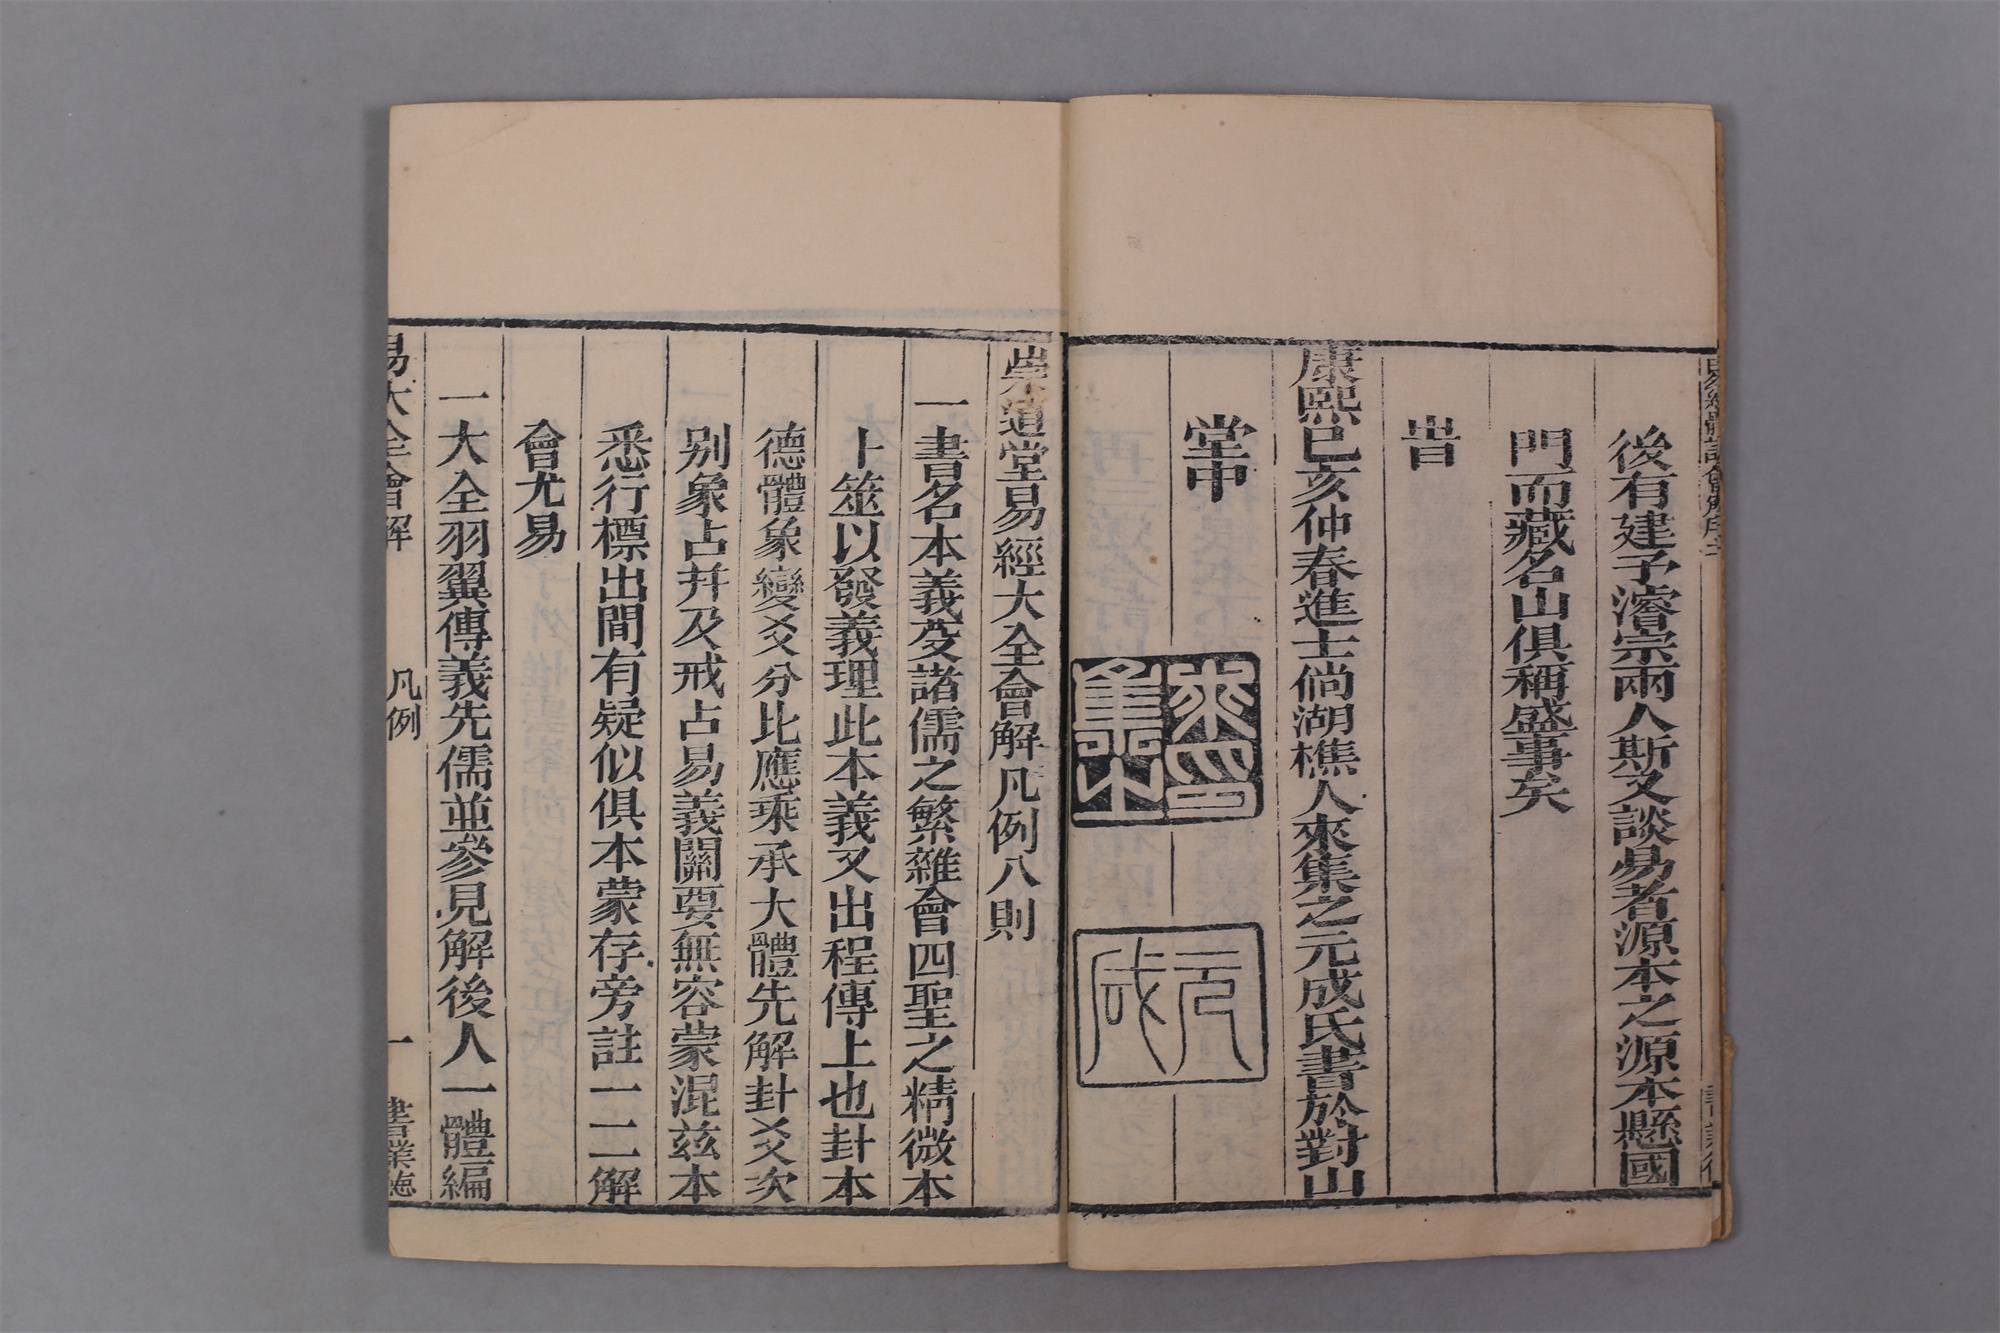 後有建予濬宗兩人斯又談易者源本之源本懸國
門而藏名山俱稱盛事矣
旹
康熙已亥仲春進士倘湖樵人來集之元成氏書於對山
堂中
來集之印
元成
崇道堂易經大全會解凡例八則
一書名本義及諸儒之繁雜會四聖之精微本
卜筮以發義理此本義又出程傳上也卦本
德體象變爻分比應乘承大體先解卦爻次
别象占并及戒占易義關要無容蒙混兹本
悉行標出間有疑似俱本蒙存旁註一二解
會尤易
一大全羽翼傳義先儒並參見解後人一體編
易大全會解 凡例 一 書業德